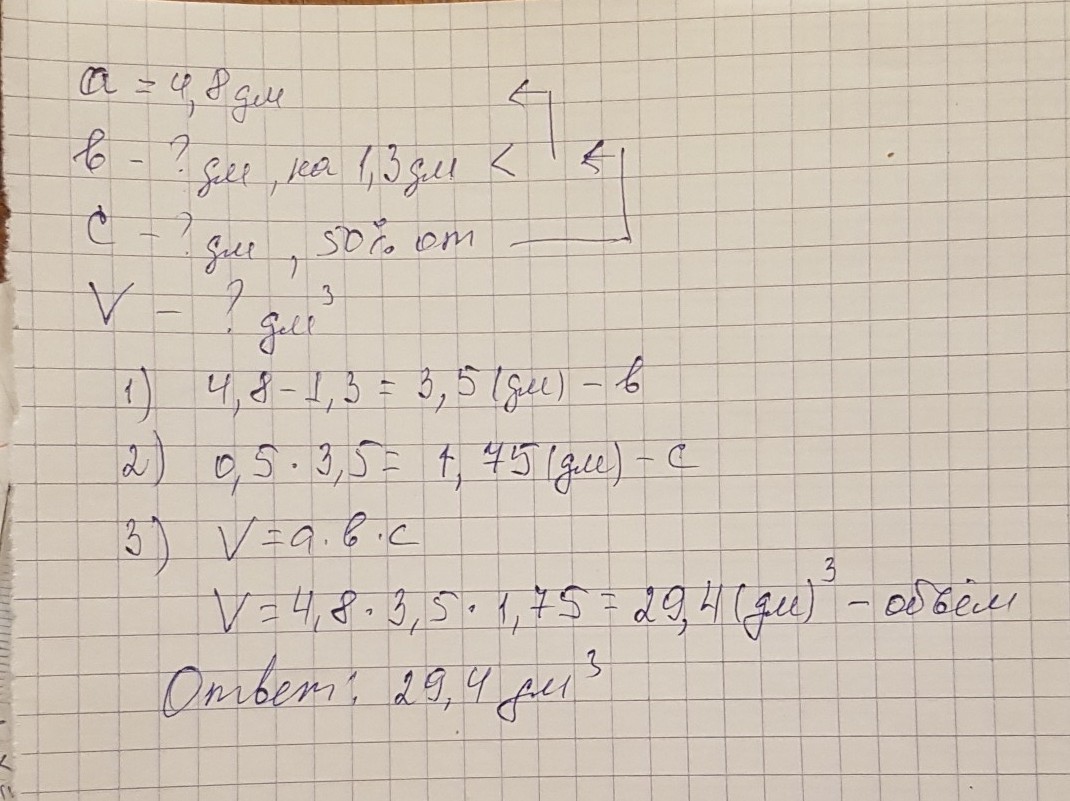 a = 4,8 дм
в - ? дм, на 1,3 дм <
с - ? дм, 50% от
V - ? дм³
1) 4,8 - 1,3 = 3,5 (дм) - в
2) 0,5 · 3,5 = 1,75 (дм) - с
3) V = a · в · с
V = 4,8 · 3,5 · 1,75 = 29,4 (дм)³ - объём
Ответ: 29,4 дм³